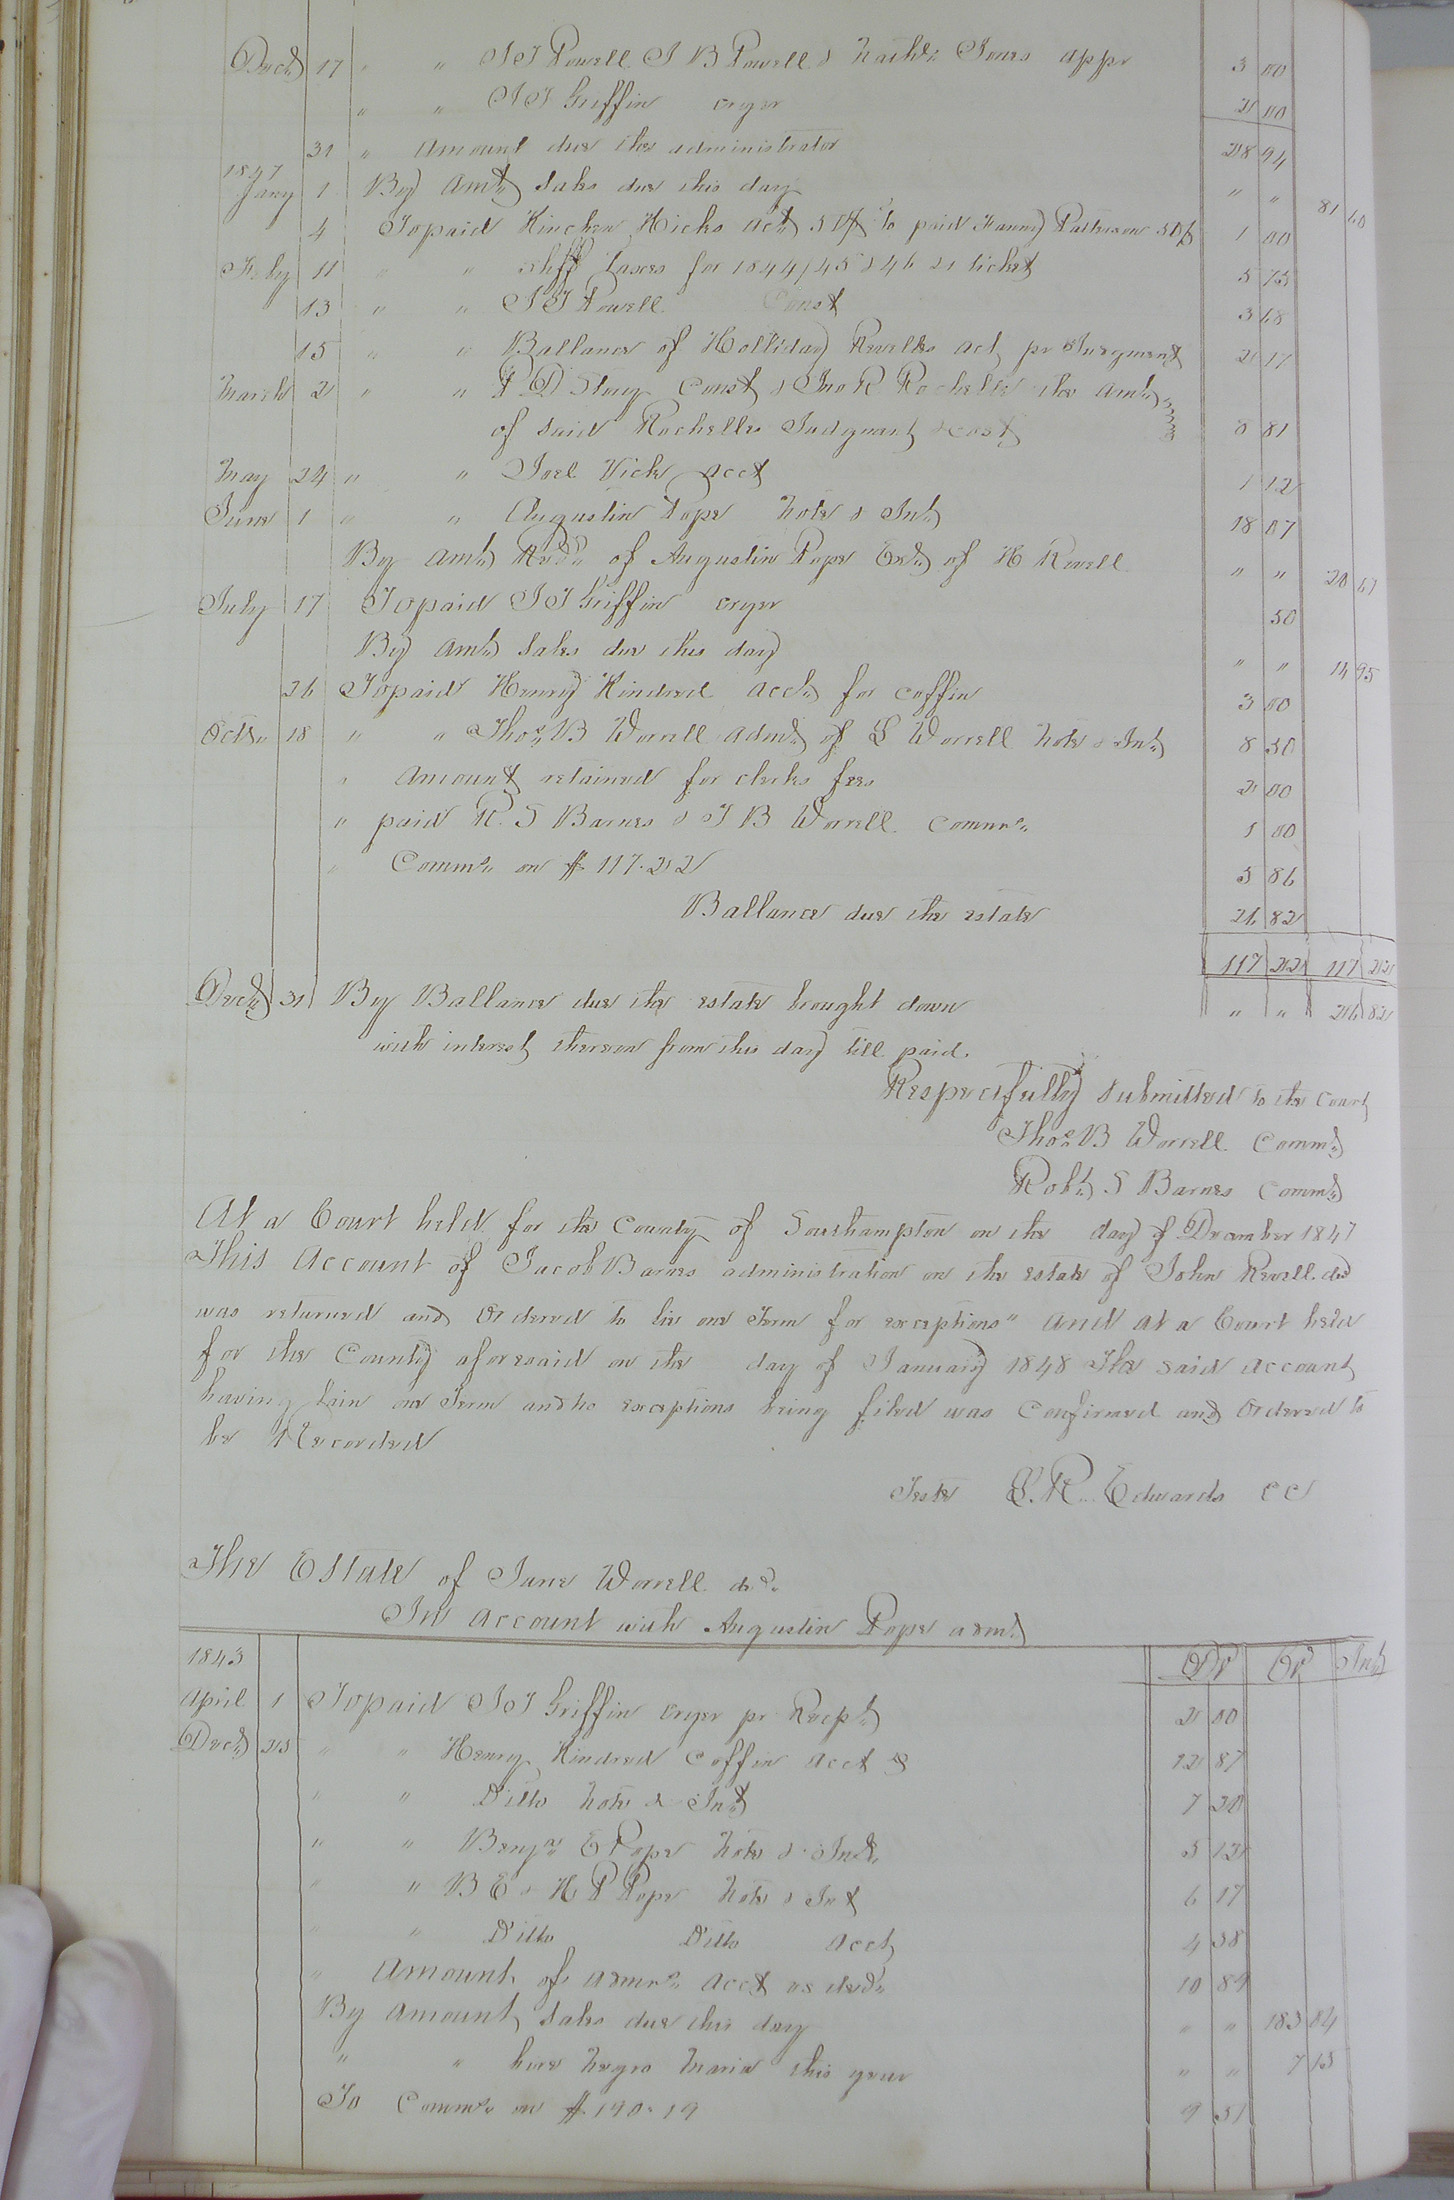 Decr 17 " " J T Powell J B Powell & Nathl Jones appr 3 00
" " J T Griffin cryer 2 00
31 " Amount due the administrator 28 94
1847
Jany 1 By Amt Sales due this day " " 81 60
4 To paid Kinchen Hicks act 50¢ To paid Fanny Patterson 50¢ 1 00
Feby 11 " " Shff Taxes for 1844/45 & 46 21 ticket 5 75
13 " " J T Powell Const 3 68
15 " " Ballance of Holliday Revells act pr Jurgment 2 17
March 2 " " Const & Jno R Rochelle the Amt
of said Rochelles Judgment & cost 8 81
May 24 " " Joel Vick acct 1 12
June 1 " " Augustin Pope Note & Int 18 07
By Amt Recd of Augustin Pope Exr of H Revell " " 20 67
July 17 To paid J T Griffin cryer 50
By Amt Sales due this day " " 14 95
26 To paid Henry Kindred acct for coffin 3 00
Octr 18 " " Thos B Worrell admr of Worrell Note & Int 8 50
" Amount retained for clerks fees 2 00
" paid R. S Barnes & T B Worrell Commrs 1 00
" Comms on $ 117.22 5 86
Ballance due the estate 26 82
117 22 117 22
Decr 31 By Ballance due the estate brought down " " 26 82
with interest thereon from this day till paid.
Respectfully submitted to the Court
Thos B Worrell Commr
Robt S Barnes Commr
At a Court held for the County of Southampton on the day of December 1847
This Account of Jacob Barnes administration on the estate of John Revell decd
was returned and Ordered to lie one Term for exceptions" And at a Court held
for the County aforesaid on the day of January 1848 The said account
having lain one Term and no exceptions being filed was Confirmed and Ordered to
be Recorded
Teste L. R. Edwards CC
The Estate of June Worrell decd
In account with Augustin Pope admr
1843 Dr Cr Int
April 1 To paid J T Griffin cryer pr Recpt 2 00
Decr 25 " " Henry Kindred coffin acct & 12 87
" " Ditto Note & Int 7 20
" " Benja E Pope Note & Int 5 12
" " B E & H P Pope Note & Int 6 17
" " Ditto Ditto acct 4 38
" Amount of admrs acct as stdd 10 89
By Amount Sales due this day " " 183 04
" " hire Negro Maria this year " " 7 15
To Comms on $ 190.19 9 51